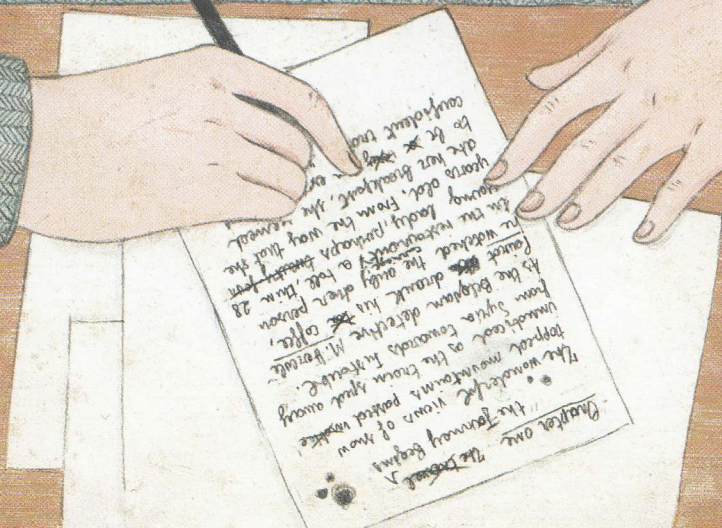 Chapter one "the Journey Begins
The wonderful views of snow
topped mountains passed
unnoticed as the train sped away
from Syria towards Instanbul.
As the Belgian detective M. Hercule
Poirot drank his coffee,
he watched the only other person
in the restaurant carriage, a tall, thin
young lady, perhaps twenty four 28
years old. From the way that she
ate her breakfast, she seemed
to be
confident